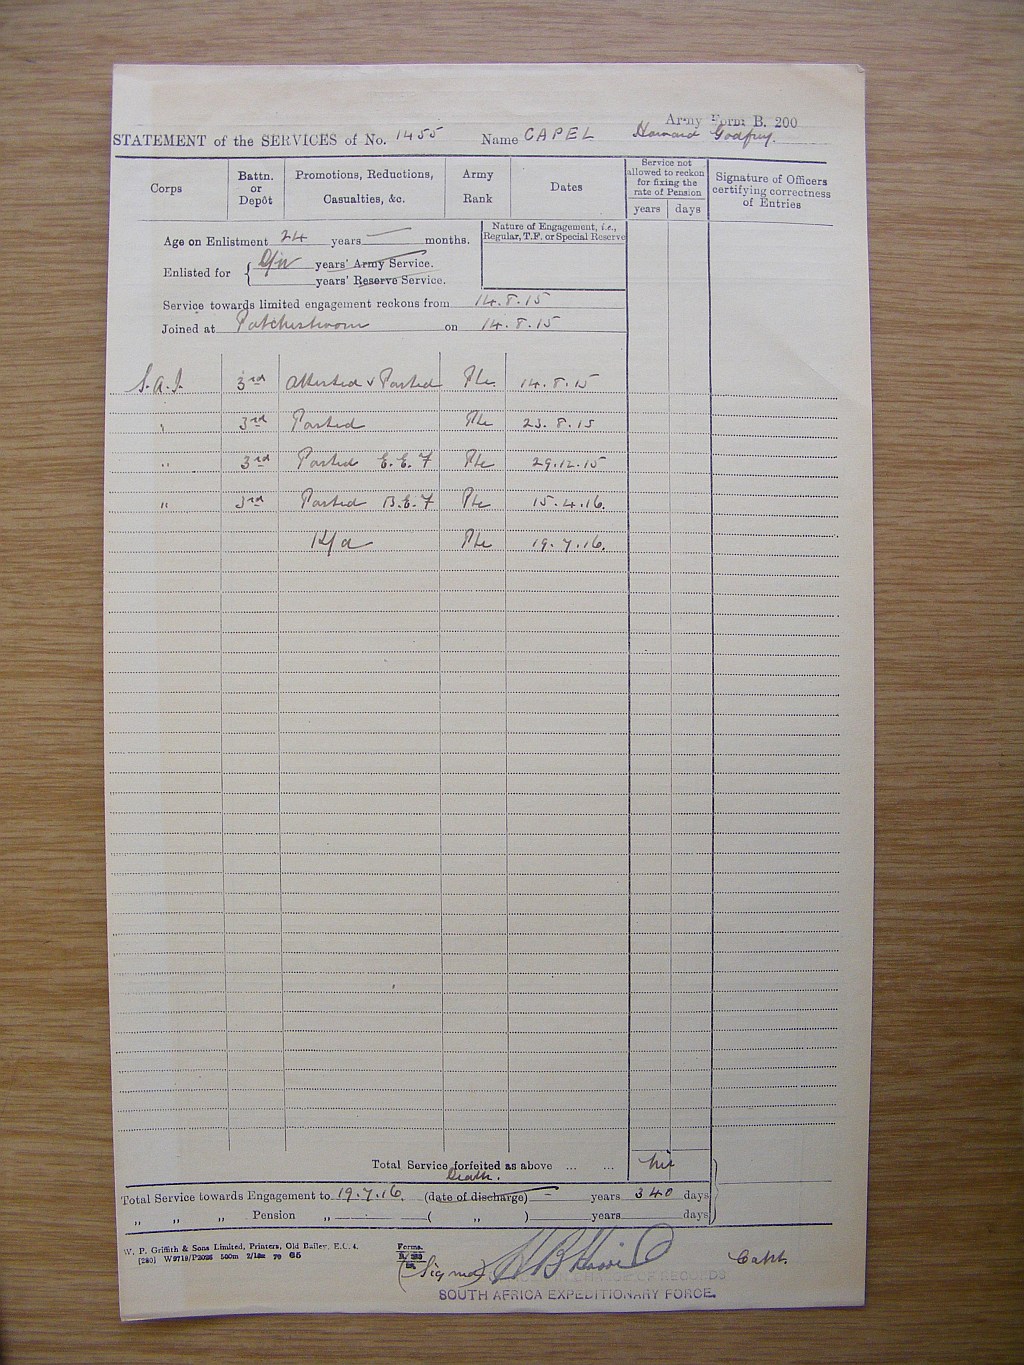 Army Form B. 200
STATEMENT of the SERVICES of No. 1455 Name CAPEL Howard Godfrey.
Corps
Battn. or Depôt
Promotions, Reductions, Casualties, &c.
Army Rank
Dates
Service not allowed to reckon for fixing the rate of Pension
years days
Signature of Officers certifying correctness of Entries
Age on Enlistment 24 years — months.
Nature of Engagement, i.e., Regular, T.F. or Special Reserve
Enlisted for { D/W years' Army Service.
years' Reserve Service.
Service towards limited engagement reckons from 14.8.15
Joined at Potchestroom on 14.8.15
S.A.I. 3rd Attested & Posted Pte 14.8.15
" 3rd Posted Pte 23.8.15
" 3rd Posted E.E.F Pte 29.12.15
" 3rd Posted B.E.F Pte 15.4.16.
K/a Pte 19.7.16.
Total Service forfeited as above ... ... Nil
Death.
Total Service towards Engagement to 19.7.16. (date of discharge) — years 340 days
" " " Pension " ( " ) years days
W. P. Griffith & Sons Limited, Printers, Old Bailey, E.C. 4.
Forms.
(Signed) Capt.
OF RECORDS
SOUTH AFRICA EXPEDITIONARY FORCE.